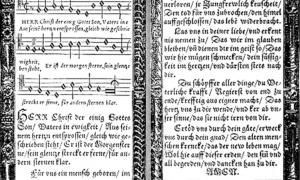 HERR Christ der einig Gottes Son, Vaters inn
Aus seim hertzen entsprossen, gleich wie geschrieben
wigkeit,
bes steht,
Er ist der morgensterne, sein glentze
strecket er ferne, für andern sternen klar.
HERR Christ der einig Gottes
Son, Vaters in ewigkeit, Aus seim
hertzen entsprossen, gleich wie ge-
schrieben steht, Er ist der Morgenster-
ne, sein glentz streckt er ferne, für an-
dern sternen klar.
Für uns ein mensch geboren, im
verloren, jr Jungfrewlich krauscheit,
Den tod für uns zubrochen, den himel
auffgschlossen, das lebē widerbracht.
Las uns in deiner liebe, und erkent
nis nemen zu, Das wir im glauben
bleiben, und dienen dir im geist so, Das
wir hie mügen schmecken, dein süssig-
keit im hertzen, und dürsten stets nach
dir.
Du schöpffer aller dinge, du Ve-
terliche krafft, Regierst von end zu
ende, krefftig aus eigner macht, Das
hertz uns zu dir wende, und ker ab un-
ser sinne, das sie nicht irrn von dir.
Ertöd uns durch dein güte, erweck
uns durch dein gnad, Den alten men-
schen krencke, das der new leben mag,
Wol hie auff dieser erden, den sin und
all begerden, und dancken han zu dir.
AMEN.